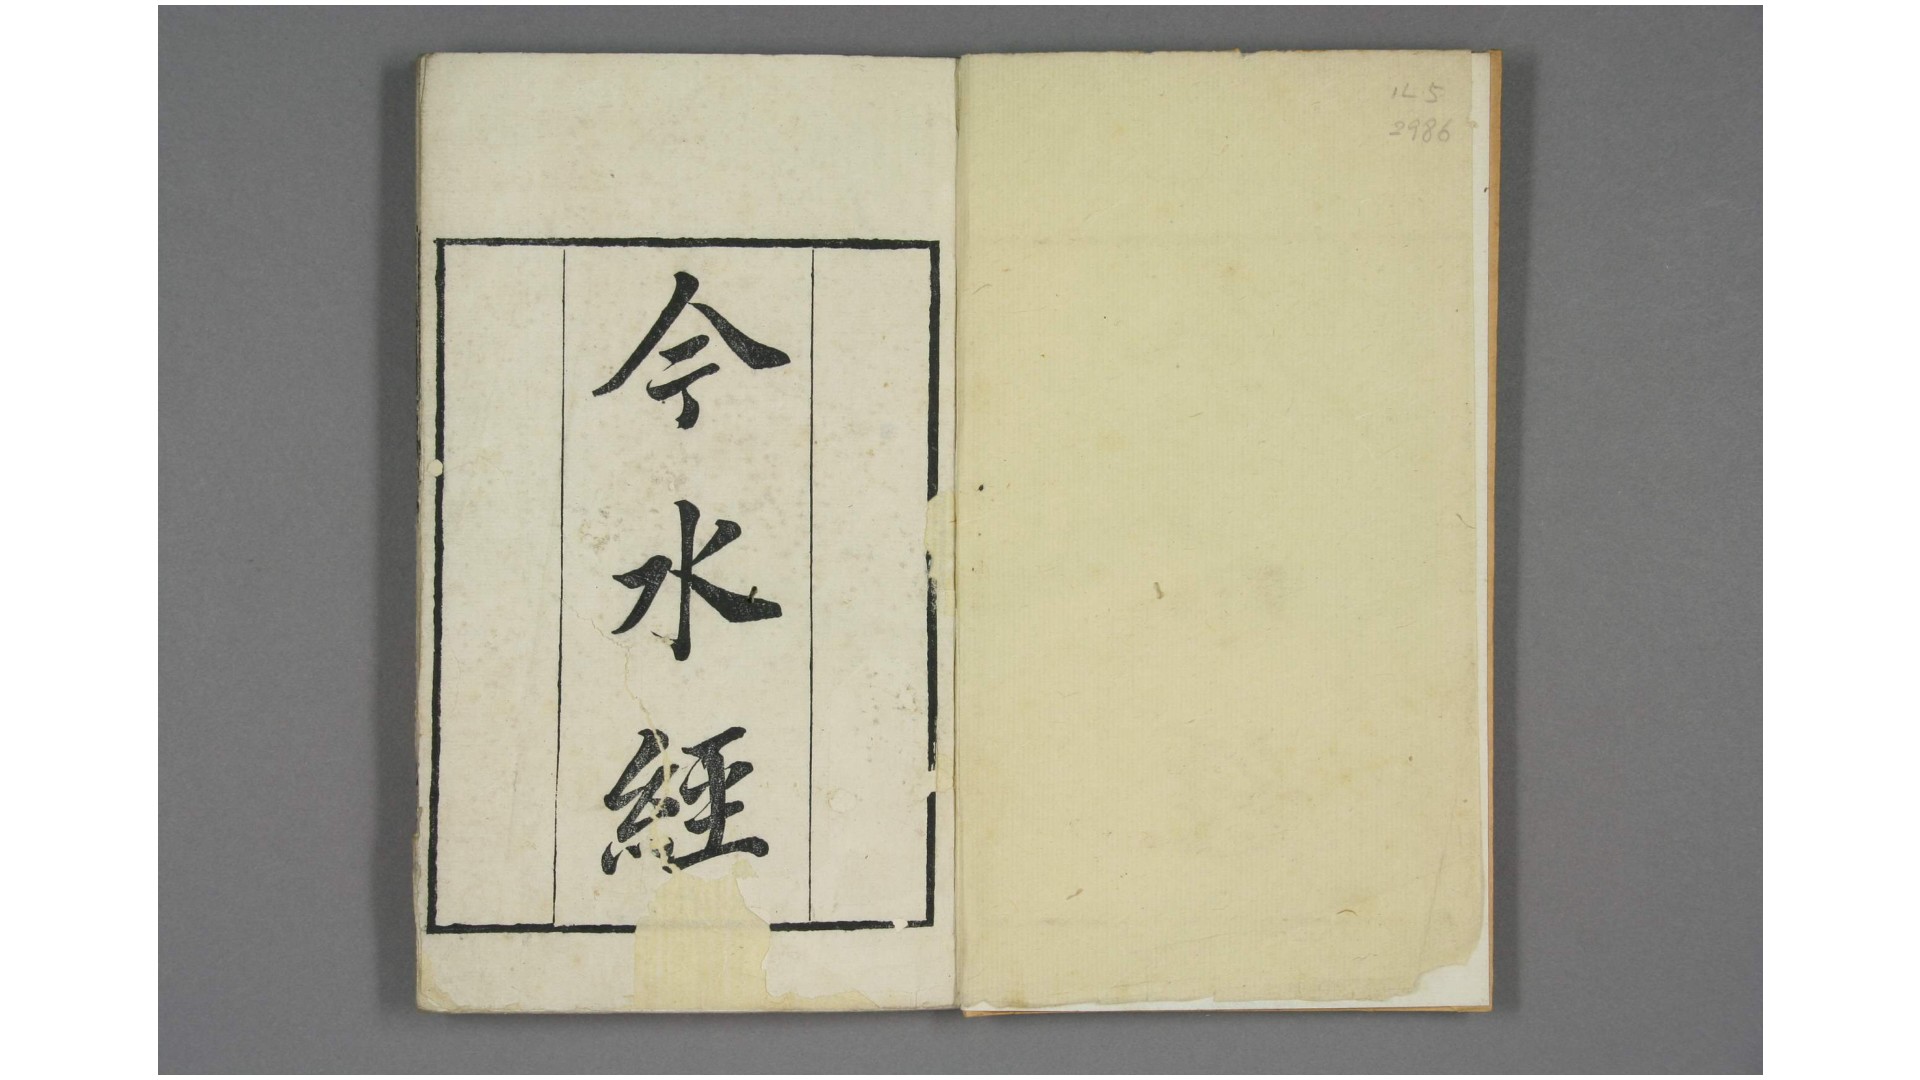 今水經
ル5
2986